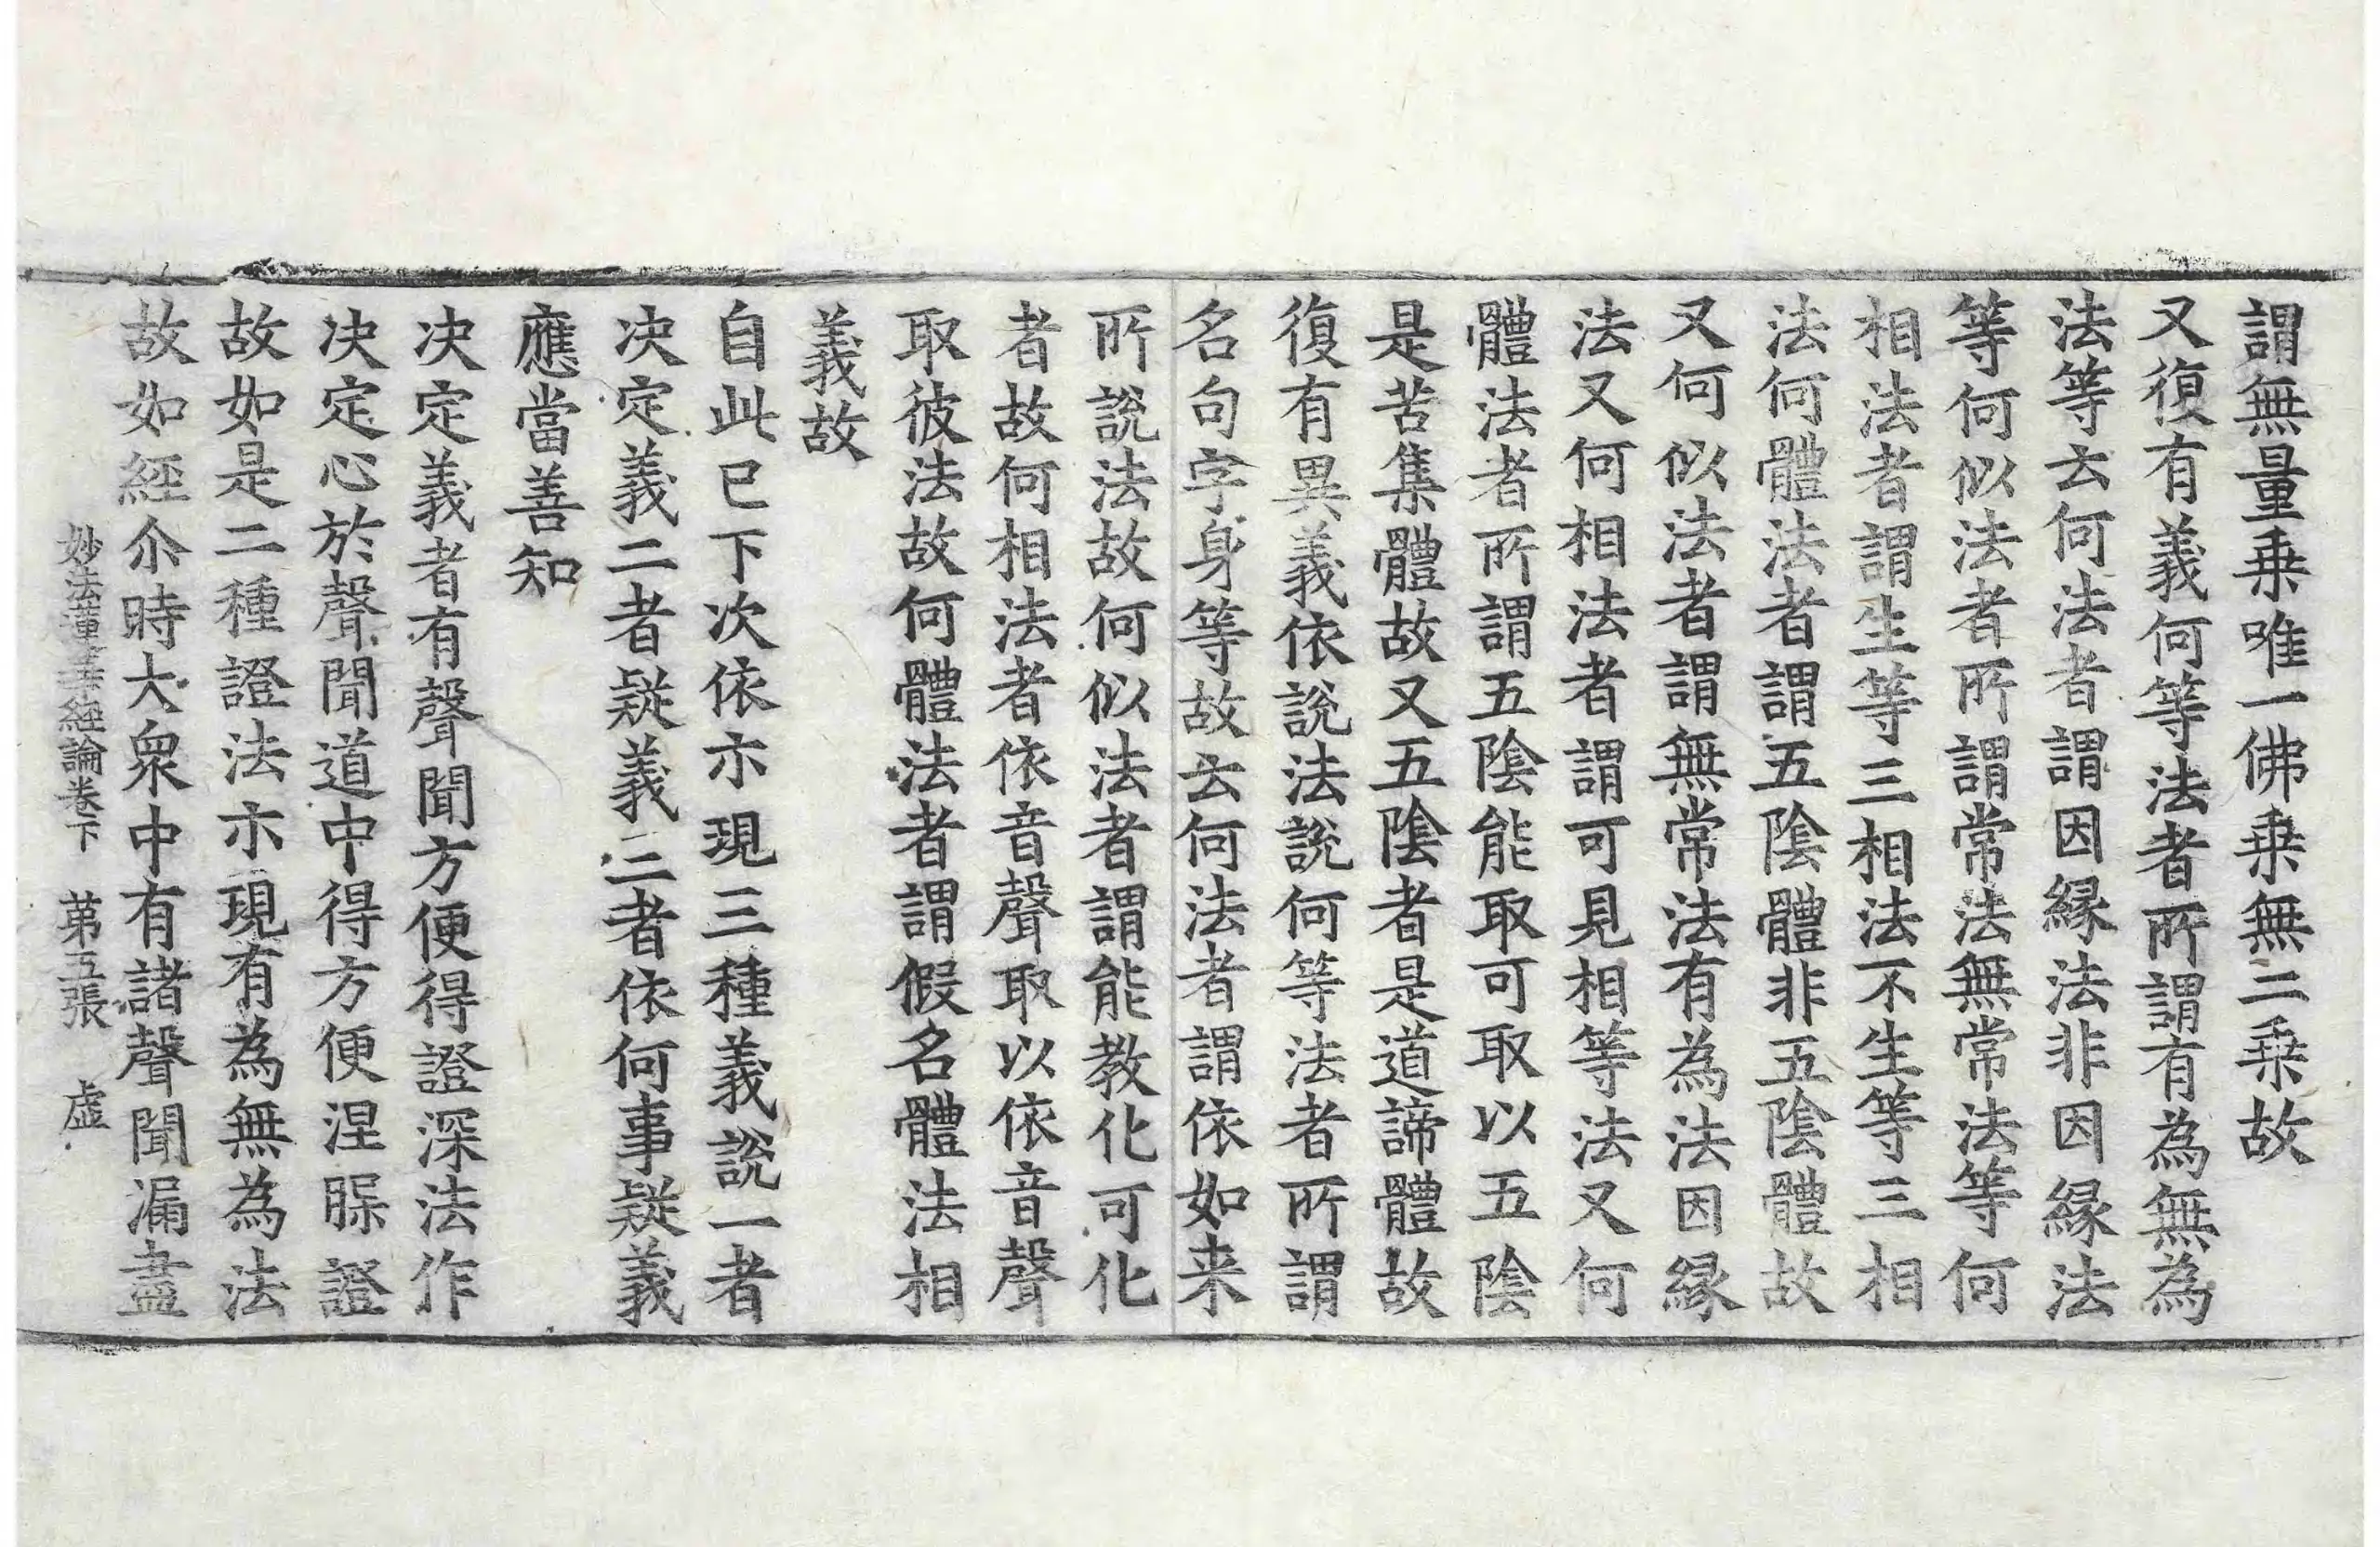 謂無量乗唯一佛乗無二乗故
又復有義何等法者所謂有為無為
法等云何法者謂因縁法非因縁法
等何似法者所謂常法無常法等何
相法者謂生等三相法不生等三相
法何體法者謂五陰體非五陰體故
又何似法者謂無常法有為法因縁
法又何相法者謂可見相等法又何
體法者所謂五陰能取可取以五陰
是苦集體故又五陰者是道諦體故
復有異義依說法說何等法者所謂
名句字身等故云何法者謂依如来
所說法故何似法者謂能教化可化
者故何相法者依音聲取以依音聲
取彼法故何體法者謂假名體法相
義故
自此已下次依示現三種義說一者
决定義二者疑義三者依何事疑義
應當善知
决定義者有聲聞方便得證深法作
决定心於聲聞道中得方便涅槃證
故如是二種證法示現有為無為法
故如經尒時大衆中有諸聲聞漏盡
妙法蓮華經論卷下 第五張 虛